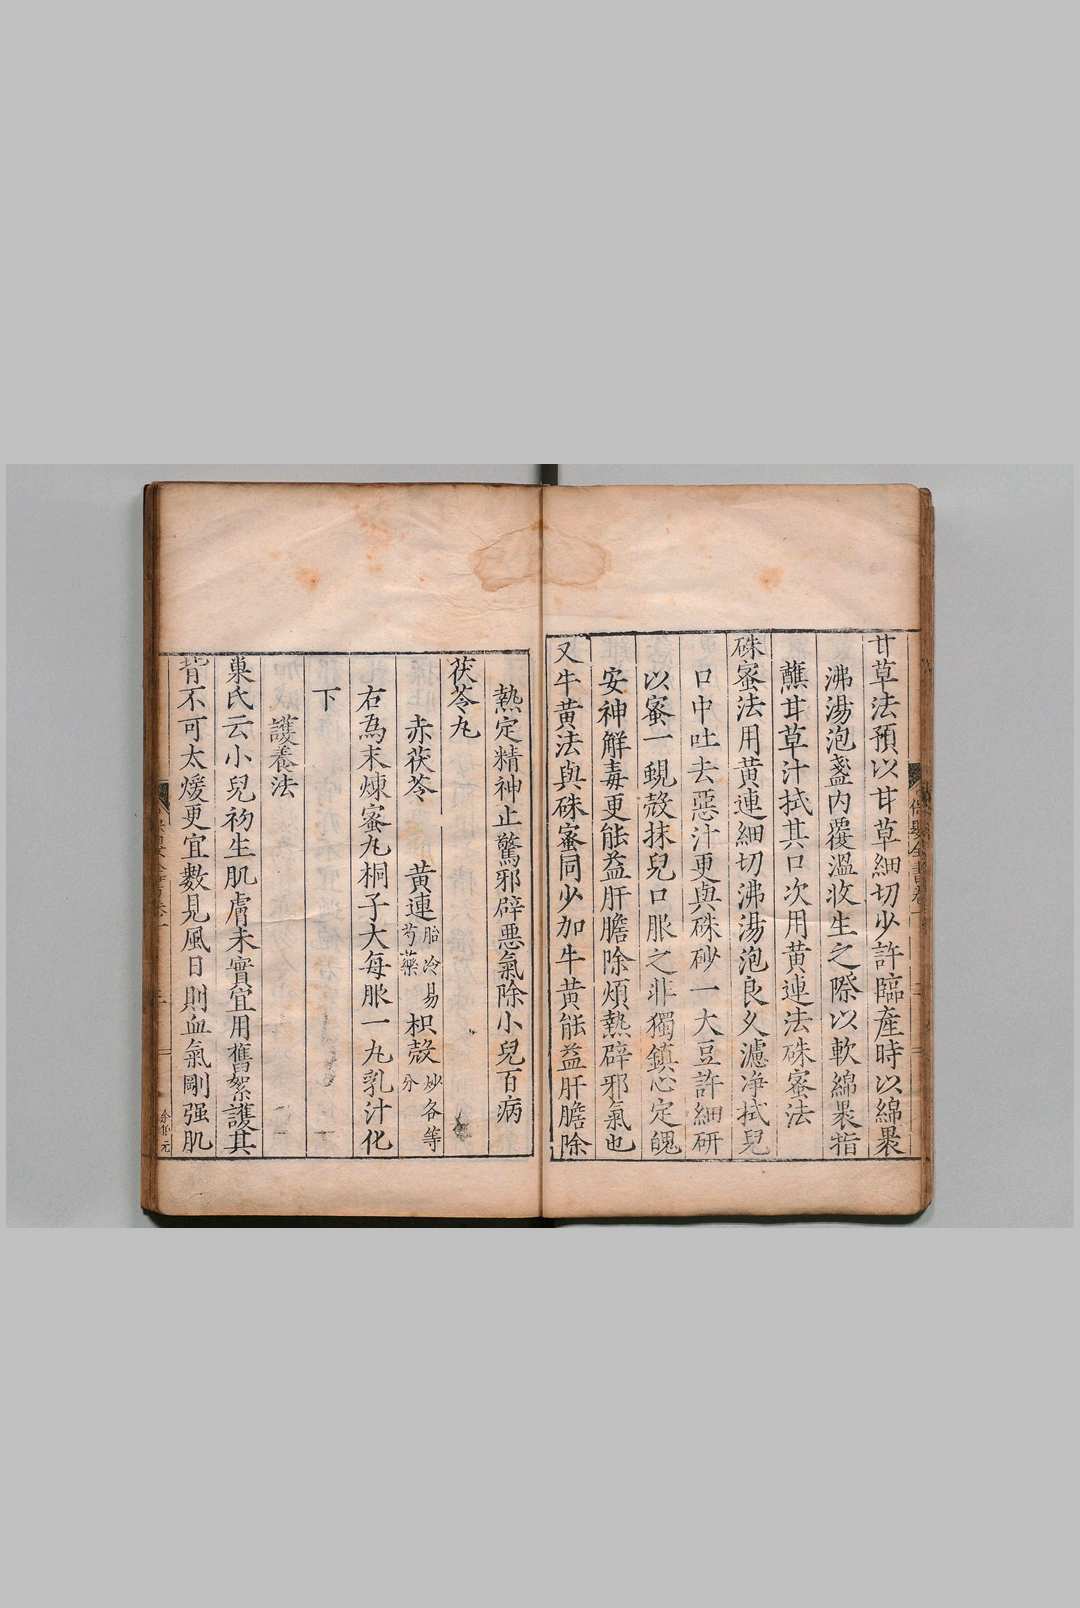 甘草法預以甘草細切少許臨產時以綿裹
沸湯泡盞內覆溫收生之際以軟綿裹指
蘸甘草汁拭其口次用黃連法硃蜜法
硃蜜法用黃連細切沸湯泡良久濾淨拭兒
口中吐去惡汁更與硃砂一大豆許細研
以蜜一蜆殼抹兒口服之非獨鎮心定魄
安神解毒更能益肝膽除煩熱辟邪氣也
又牛黃法與硃蜜同少加牛黃能益肝膽除
熱定精神止驚邪辟惡氣除小兒百病
茯苓丸
赤茯苓 黃連胎冷易芍藥 枳殼炒各等分
右為末煉蜜丸桐子大每服一丸乳汁化
下
護養法
巢氏云小兒初生肌膚未實宜用舊絮護其
背不可太煖更宜數見風日則血氣剛强肌
保嬰全書卷一